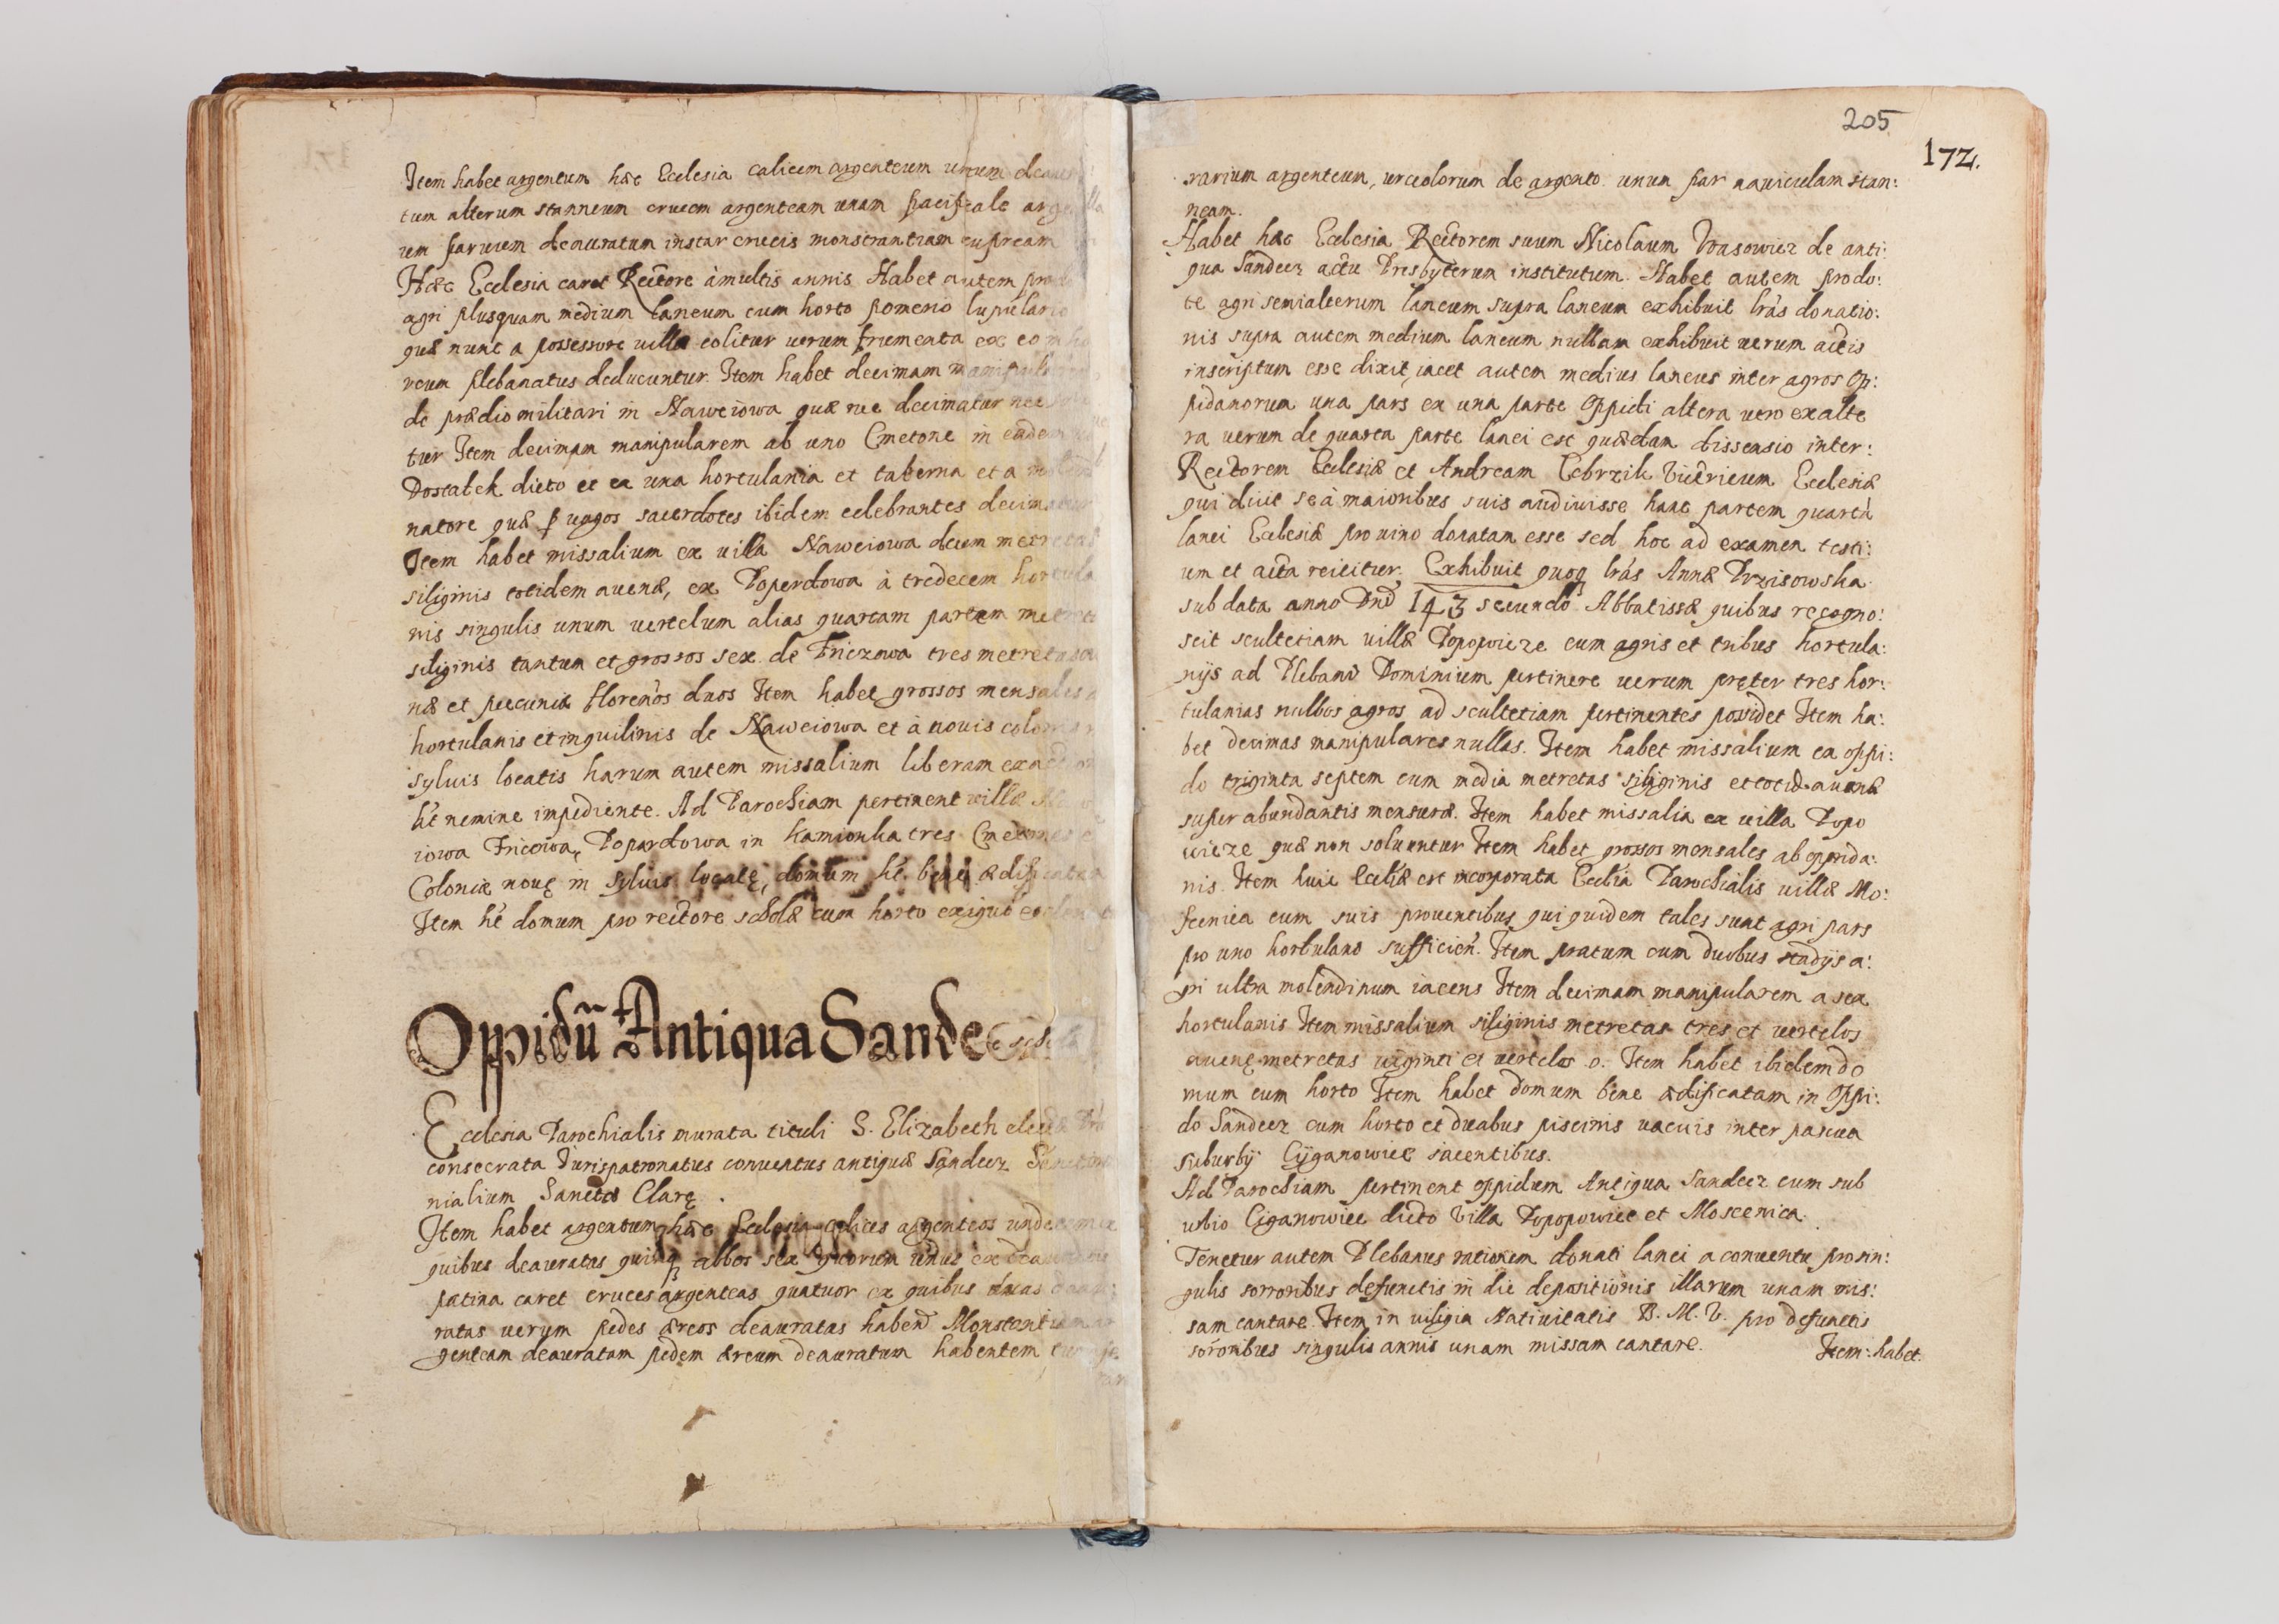 Item habet argentum hæc Ecclesia calicem argenteum unum deaura
tum alterum stanneum crucem argenteam unam pacificale argen
um paruum deauratum instar crucis monstrantiam cupream
Hæc Ecclesia caret Rectore à multis annis. Habet autem pro
agri plusquam medium laneum cum horto pomerio lupulario
quæ nunc a possessore uillæ colitur uerum frumenta ex eo in ho
reum plebanatus deducuntur. Item habet decimam manipularem
de prædio militari in Naweiowa quæ nec decimatur nec
tur Item decimam manipularem ab uno Cmetone in eadem
Dostatek dicto et ex una hortulania et taberna et a
natore quæ p uagos sacerdotes ibidem celebrantes decimatur
Item habet missalium ex uilla Naweiowa decem metretas
siliginis totidem auenæ, ex Poperdowa à tredecem hortula
nis singulis unum uertelum alias quartam partem metret
siliginis tantum et grossos sex de Friczowa tres metretas
næ et pecuniæ florenos duos Item habet grossos mensales
hortulanis et inquilinis de Naweiowa et à nouis colonis
syluis locatis harum autem missalium liberam exaction
hẽ nemine impediente. Ad Parochiam pertinent uillæ
iowa Fricowa, Popardowa in Kamionka tres Cmetones
Coloniæ nouę in syluis locatę, domum hẽ bene ædificatam
Item hẽ domum pro rectore scholæ cum horto exiguo
Oppidũ Antiqua Sande
Ecclesia Parochialis murata tituli S. Elizabeth
consecrata Jurispatronatus conuentus antiquæ Sandecz Sanctimo
nialium Sanctæ Clarę.
Item habet argentum hæc Ecclesia calices argenteos undecem ex
quibus deauratos quinq albos sex quorum unus ex deauratis
patina caret cruces argenteas quatuor ex quibus duas deau
ratas uerum pedes æreos deauratas habẽn Monstrantiam ar
genteam deauratam pedem æreum deauratum habentem
205
172.
rarium argenteum, urceolorum de argento unum par nauiculam stan:
neam.
Habet hæc Ecclesia Rectorem suum Nicolaum Wasowicz de anti:
qua Sandecz actu Presbyterum institutum. Habet autem pro do:
te agri semialterum laneum supra laneum exhibuit lrãs donatio:
nis supra autem medium laneum nullam exhibuit uerum actis
inscriptum esse dixit, iacet autem medius laneus inter agros Op:
pidanorum una pars ex una parte Oppidi altera uero ex alte
ra uerum de quarta parte lanei est quædam dissensio inter:
Rectorem Ecclesiæ et Andream Cebrzik Vitricum Ecclesiæ
qui dicit se à maioribus suis audiuisse hanc partem quartã
lanei Ecclesiæ pro uino donatam esse sed hoc ad examen testi:
um et acta reiicitur. Exhibuit quoq lrãs Annæ Przisowska
sub data anno Dnĩ 143 secundo Abbatissæ quibus recogno:
scit scultetiam uillæ Popowicze cum agris et tribus hortula:
nijs ad Plebani Dominium pertinere uerum pręter tres hor:
tulanias nullos agros ad scultetiam pertinentes possidet Item ha:
bet decimas manipulares nullas. Item habet missalium ex oppi:
do triginta septem cum media metretas siliginis et totid. auenæ
super abundantis mensuræ. Item habet missalia ex uilla Popo
wicze quæ non soluuntur Item habet grossos mensales ab oppida:
nis. Item huic Ecclĩæ est incorporata Ecclĩa Parochialis uillæ Mo:
scenica cum suis prouentibus qui quidem tales sunt agri pars
pro uno hortulano sufficien. Item pratum cum duobus stadijs a:
gri ultra molendinum iacens Item decimam manipularem a sex
hortulanis Item missalium siliginis metretas tres et uertelos
auenę metretas uiginti et uertelos .o. Item habet ibidem do
mum cum horto Item habet domum bene ædificatam in Oppi:
do Sandecz cum horto et duabus piscinis uacuis inter pascua
suburbij Cyganowice iacentibus.
Ad Parochiam pertinent oppidum Antiqua Sandecz cum sub
urbio Ciganowice dicto Villa Popopowicе et Moscenica.
Tenetur autem Plebanus rationem donati lanei a conuentu pro sin:
gulis sororibus defunctis in die depositionis illarum unam mis:
sam cantare. Item in uiligia Natiuitatis B. M. V. pro defunctis
sororibus singulis annis unam missam cantare.
Item: habet.